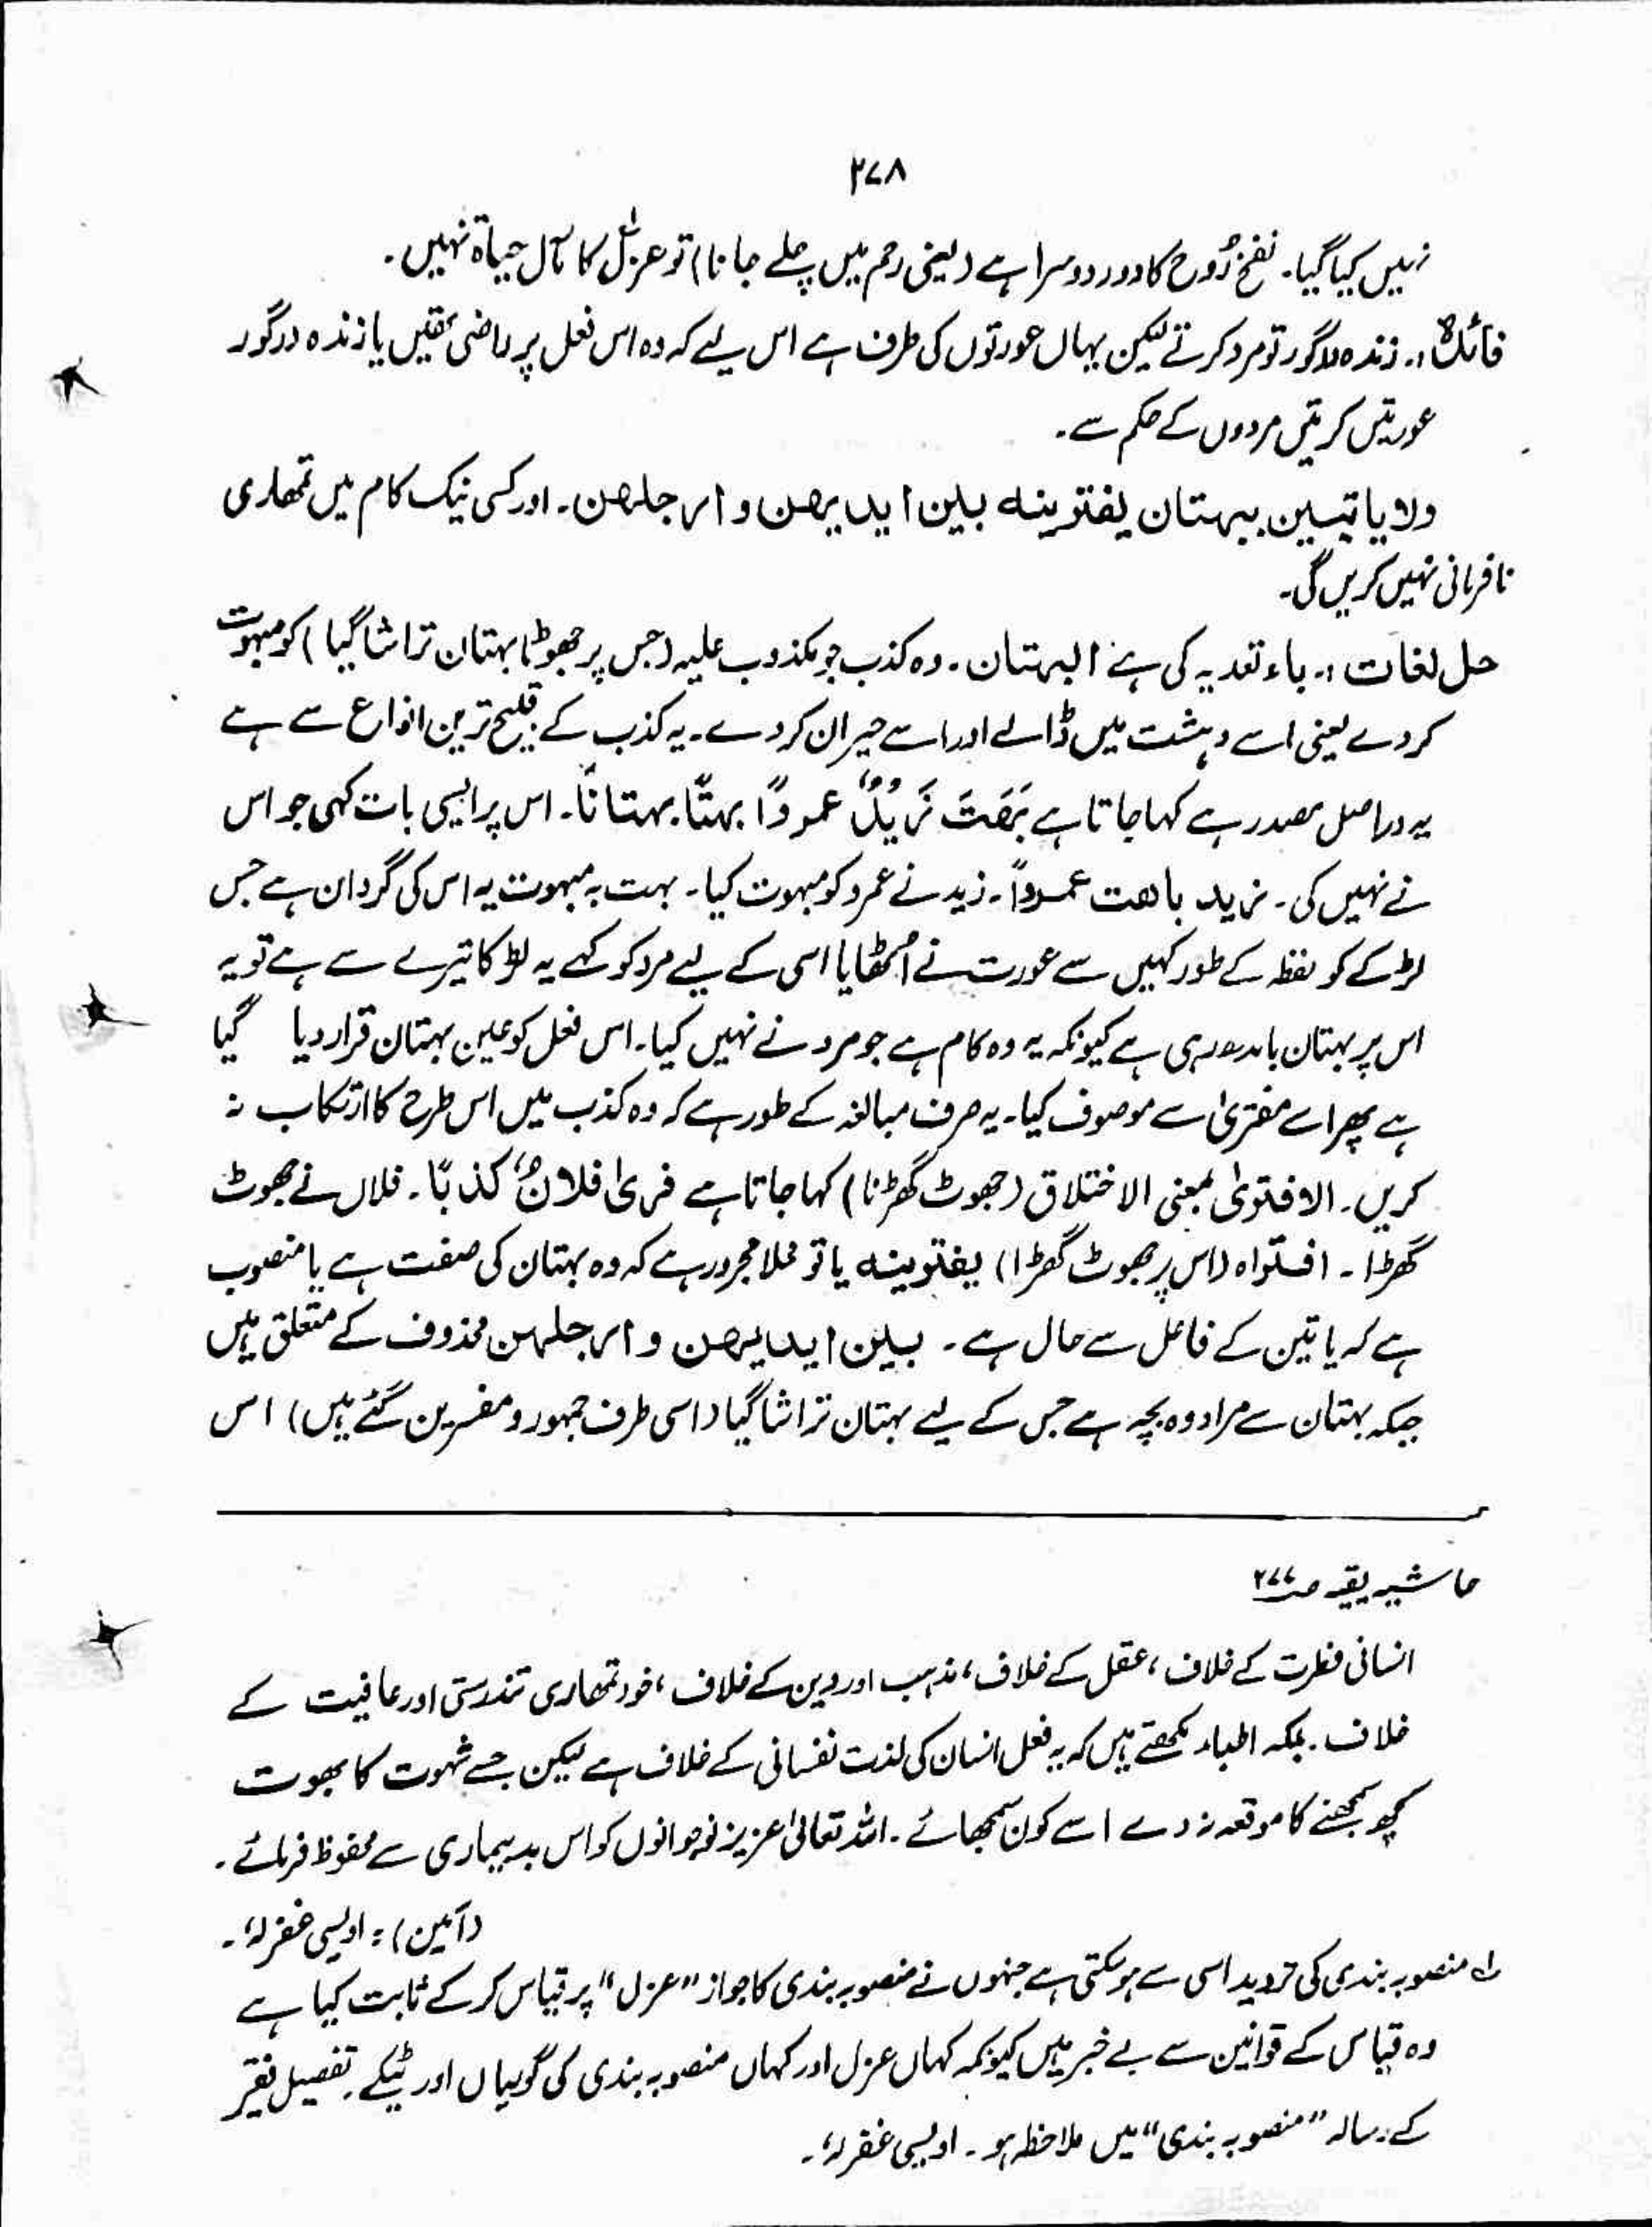 ۲۷۸
نہیں کیا گیا۔ نفخ رُوح کا دور دوسرا ہے (یعنی رحم میں چلے جانا) تو عزل۱ کا مآل حیاۃ نہیں۔
فائدہ:۔ زندہ درگور تو مرد کرتے لیکن یہاں عورتوں کی طرف ہے اس لیے کہ وہ اس فعل پر راضی تھیں یا زندہ درگور
عورتیں کرتیں مردوں کے حکم سے۔
ولا یاتین ببہتان یفترینہ بین ایدیھن و ارجلھن۔ اور کسی نیک کام میں تمھاری
نافرمانی نہیں کریں گی۔
حل لغات:۔ باء تعدیہ کی ہے البہتان۔ وہ کذب جو مکذوب علیہ (جس پر جھوٹا بہتان تراشا گیا) کو مبہوت
کر دے یعنی اسے دہشت میں ڈالے اور اسے حیران کر دے۔ یہ کذب کے قبیح ترین انواع سے ہے
یہ دراصل مصدر ہے کہا جاتا ہے بَھَتَ زَیْدٌ عمروًا بہتًا بہتانًا۔ اس پر ایسی بات کہی جو اس
نے نہیں کی۔ زید باھت عمروًا۔ زید نے عمرو کو مبہوت کیا۔ بہت بہ مبہوت یہ اس کی گردان ہے جس
لڑکے کو لفظہ کے طور کہیں سے عورت نے اُٹھایا اسی کے لیے مرد کو کہے یہ لڑکا تیرے سے ہے تو یہ
اس پر بہتان باندھ رہی ہے کیونکہ یہ وہ کام ہے جو مرد نے نہیں کیا۔ اس فعل کو عین بہتان قرار دیا گیا
ہے پھر اسے مفتریٰ سے موصوف کیا۔ یہ صرف مبالغہ کے طور ہے کہ وہ کذب میں اس طرح کا ارتکاب نہ
کریں۔ الافتریٰ بمعنی الاختلاق (جھوٹ گھڑنا) کہا جاتا ہے فریٰ فلانٌ کذبًا۔ فلاں نے جھوٹ
گھڑا۔ افتراہ (اس پر جھوٹ گھڑا) یفترینہ یا تو محلا مجرور ہے کہ وہ بہتان کی صفت ہے یا منصوب
ہے کہ یاتین کے فاعل سے حال ہے۔ بین ایدیھن و ارجلہن محذوف کے متعلق ہیں
جبکہ بہتان سے مراد وہ بچہ ہے جس کے لیے بہتان تراشا گیا (اسی طرف جمہور و مفسرین گئے ہیں) اس
حاشیہ بقیہ صـ ۲۷۷
انسانی فطرت کے خلاف، عقل کے خلاف، مذہب اور دین کے خلاف، خود تمھاری تندرستی اور عافیت کے
خلاف۔ بلکہ اطباء لکھتے ہیں کہ یہ فعل انسان کی لذت نفسانی کے خلاف ہے لیکن جسے شہوت کا بھوت
کچھ سمجھنے کا موقعہ نہ دے اسے کون سمجھائے۔ اللہ تعالیٰ عزیز نوجوانوں کو اس بد بیماری سے محفوظ فرمائے۔
(آمین)؛ اویسی غفرلہٗ۔
۱؎ منصوبہ بندی کی تردید اسی سے ہو سکتی ہے جنہوں نے منصوبہ بندی کا جواز "عزل" پر قیاس کر کے ثابت کیا ہے
وہ قیاس کے قوانین سے بے خبر ہیں کیونکہ کہاں عزل اور کہاں منصوبہ بندی کی گولیاں اور ٹیکے۔ تفصیل فقیر
کے رسالہ "منصوبہ بندی" میں ملاحظہ ہو۔ اویسی غفرلہٗ۔